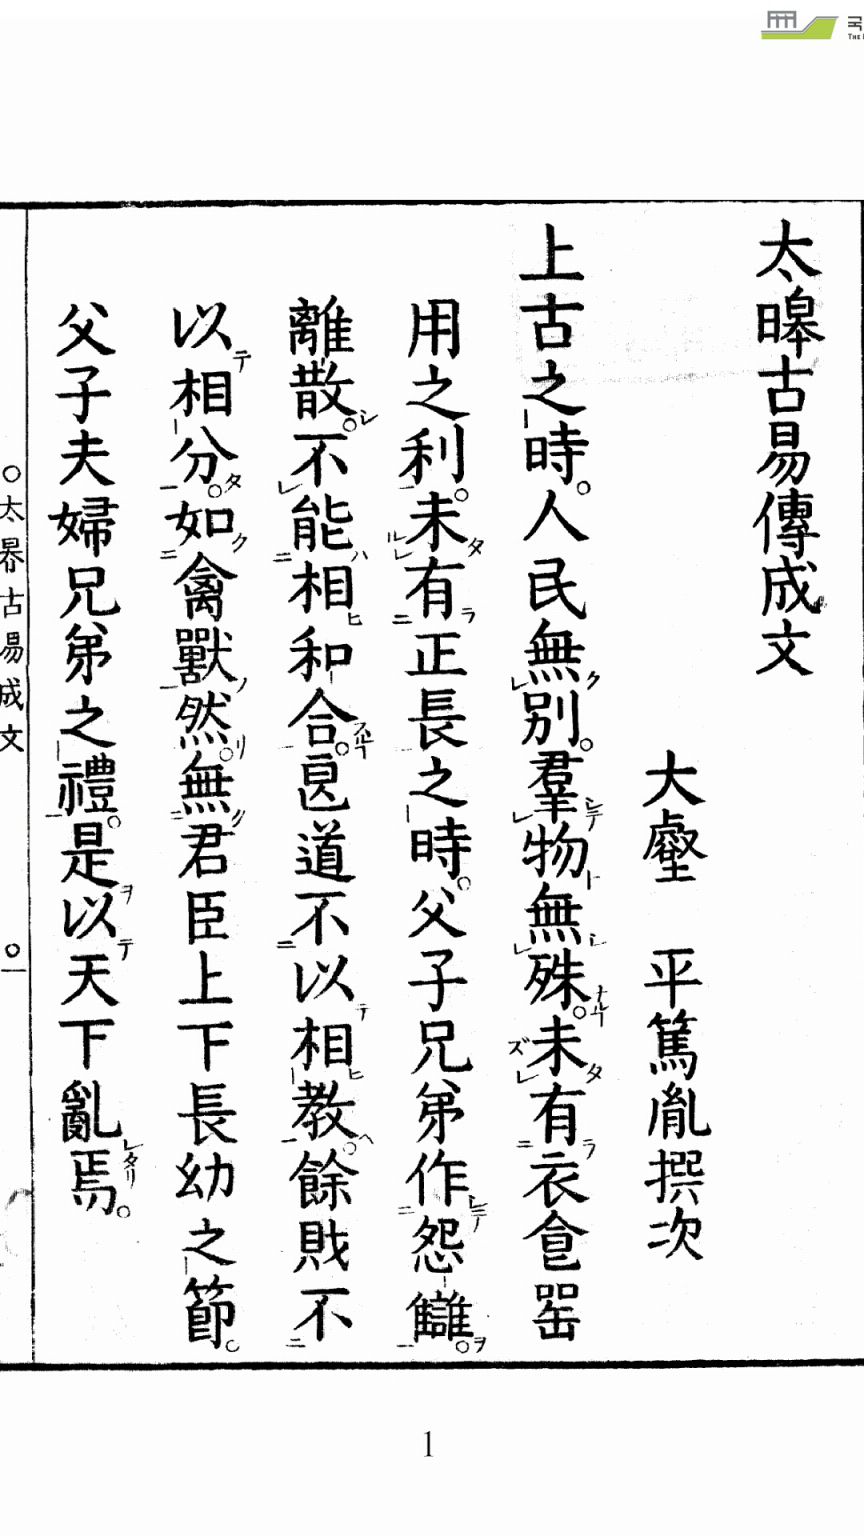 太皞古易傳成文
大壑 平篤胤撰次
上古之時。人民無別。羣物無殊。未有衣食器
用之利。未有正長之時。父子兄弟作怨讎。
離散。不能相和合。匿道不以相教。餘財不
以相分。如禽獸然。無君臣上下長幼之節。
父子夫婦兄弟之禮。是以天下亂焉。
○太昦古易成文 ○一
1